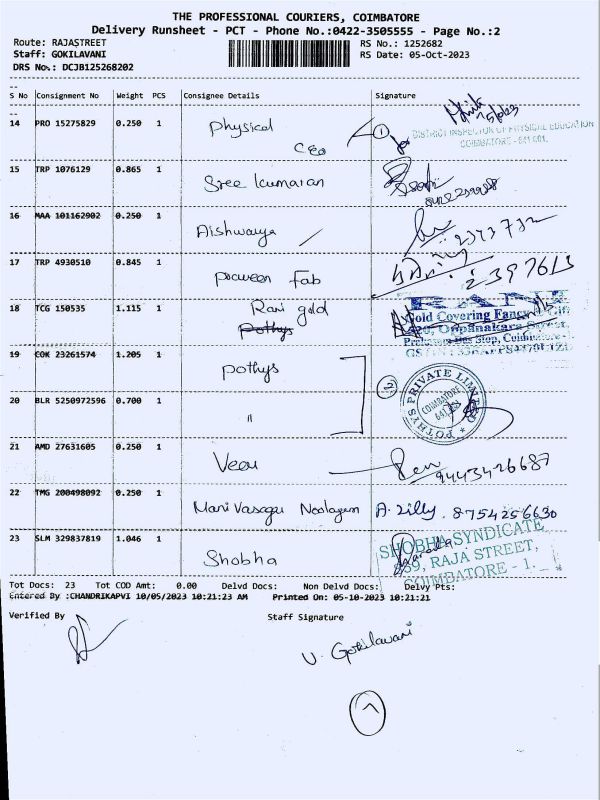 THE PROFESSIONAL COURIERS, COIMBATORE
Delivery Runsheet - PCT - Phone No.:0422-3505555 - Page No.:2
Route: RAJASTREET RS No.: 1252682
Staff: GOKILAVANI RS Date: 05-Oct-2023
DRS No.: DCJB125268202
S No Consignment No Weight PCS Consignee Details Signature
14 PRO 15275829 0.250 1 Physical CEO 1
DISTRICT INSPECTOR OF PHYSICAL EDUCATION
COIMBATORE - 641 001.
15 TRP 1076129 0.865 1 Sree Kumaran
16 MAA 101162902 0.250 1 Aishwarya
17 TRP 4930510 0.845 1 Praveen Fab 2397613
18 TCG 150535 1.115 1 Rani gold
Pothys
Gold Covering Fancy
Oppanakara Street,
Bus Stop, Coimbatore
19 COK 23261574 1.205 1 Pothys
20 BLR 5250972596 0.700 1 " 2
POTHYS PRIVATE LIMITED
COIMBATORE
21 AMD 27631605 0.250 1 Veeu 9443426687
22 TMG 200498092 0.250 1 Mani Vasagar Neolagam A. Lilly. 8754256630
23 SLM 329837819 1.046 1 Shobha
SHOBHA SYNDICATE
69, RAJA STREET,
COIMBATORE - 1.
Tot Docs: 23 Tot COD Amt: 0.00 Delvd Docs: Non Delvd Docs: Delvy Pts:
Entered By :CHANDRIKAPVI 10/05/2023 10:21:23 AM Printed On: 05-10-2023 10:21:21
Verified By Staff Signature
V. Gokilavani